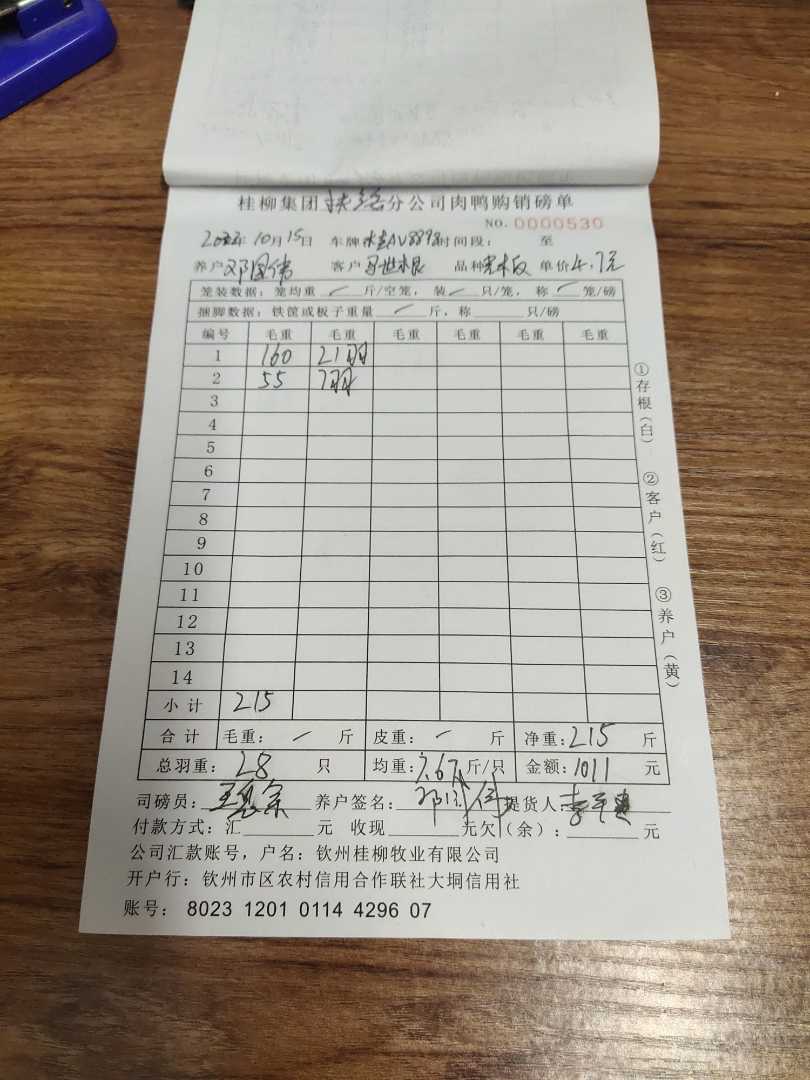 桂柳集团扶绥分公司肉鸭购销磅单
NO. 0000530
2022年10月15日 车牌 AV889 时间段： 至
养户 邓国伟 客户 马世根 品种 板 单价 4.7元
笼装数据：笼均重 / 斤/空笼， 装 / 只/笼， 称 / 笼/磅
捆脚数据：铁筐或板子重量 / 斤，称 只/磅
编号 毛重 毛重 毛重 毛重 毛重 毛重
1 160 21羽
2 55 7羽
3
4
5
6
7
8
9
10
11
12
13
14
小计 215
合计 毛重： / 斤 皮重： / 斤 净重：215 斤
总羽重： 28 只 均重：7.67 斤/只 金额：1011 元
司磅员： 王 养户签名： 邓国伟 提货人：李
付款方式：汇 元 收现 元欠（余）： 元
公司汇款账号，户名：钦州桂柳牧业有限公司
开户行：钦州市区农村信用合作联社大垌信用社
账号： 8023 1201 0114 4296 07
①存根（白）
②客户（红）
③养户（黄）